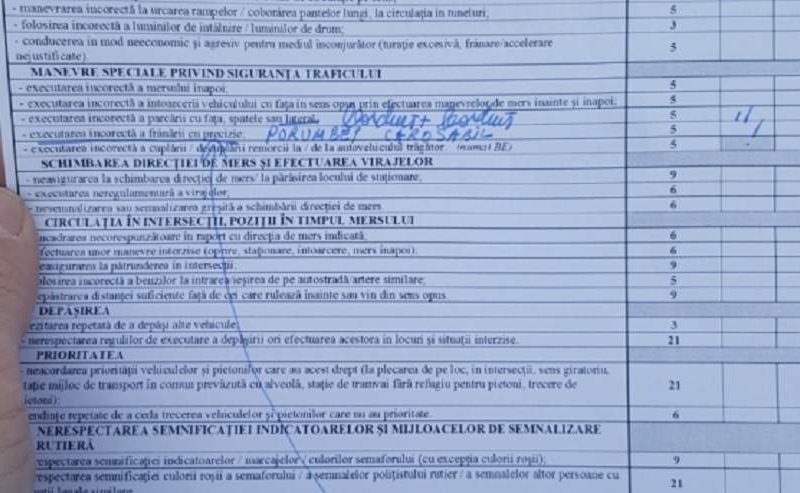 - manevrarea incorectă la urcarea rampelor / coborârea pantelor lungi, la circulația în tuneluri; 5
- folosirea incorectă a luminilor de întâlnire / luminilor de drum; 3
- conducerea în mod neeconomic și agresiv pentru mediul înconjurător (turație excesivă, frânare/accelerare 5
nejustificate).
MANEVRE SPECIALE PRIVIND SIGURANȚA TRAFICULUI
- executarea incorectă a mersului înapoi; 5
- executarea incorectă a întoarcerii vehiculului cu fața în sens opus prin efectuarea manevrelor de mers înainte și înapoi; 5
- executarea incorectă a parcării cu fața, spatele sau lateral; 5
- executarea incorectă a frânării cu precizie; PORUMBEI CAROSABIL 5
- executarea incorectă a cuplării / decuplării remorcii la / de la autovehiculul trăgător. (numai BE) 5
SCHIMBAREA DIRECȚIEI DE MERS ȘI EFECTUAREA VIRAJELOR
- neasigurarea la schimbarea direcției de mers/ la părăsirea locului de staționare; 9
- executarea neregulamentară a virajelor; 6
- nesemnalizarea sau semnalizarea greșită a schimbării direcției de mers. 6
CIRCULAȚIA ÎN INTERSECȚII, POZIȚII ÎN TIMPUL MERSULUI
ncadrarea necorespunzătoare în raport cu direcția de mers indicată; 6
fectuarea unor manevre interzise (oprire, staționare, întoarcere, mers înapoi); 6
easigurarea la pătrunderea în intersecții; 9
olosirea incorectă a benzilor la intrarea/ieșirea de pe autostradă/artere similare; 5
epăstrarea distanței suficiente față de cei care rulează înainte sau vin din sens opus. 9
DEPĂȘIREA
ezitarea repetată de a depăși alte vehicule; 3
- nerespectarea regulilor de executare a depășirii ori efectuarea acestora în locuri și situații interzise. 21
PRIORITATEA
- neacordarea priorității vehiculelor și pietonilor care au acest drept (la plecarea de pe loc, în intersecții, sens giratoriu,
tație mijloc de transport în comun prevăzută cu alveolă, stație de tramvai fără refugiu pentru pietoni, trecere de 21
ietoni);
endințe repetate de a ceda trecerea vehiculelor și pietonilor care nu au prioritate. 6
NERESPECTAREA SEMNIFICAȚIEI INDICATOARELOR ȘI MIJLOACELOR DE SEMNALIZARE
RUTIERĂ
respectarea semnificației indicatoarelor / marcajelor / culorilor semaforului (cu excepția culorii roșii); 9
respectarea semnificației culorii roșii a semaforului / a semnalelor polițistului rutier / a semnalelor altor persoane cu 21